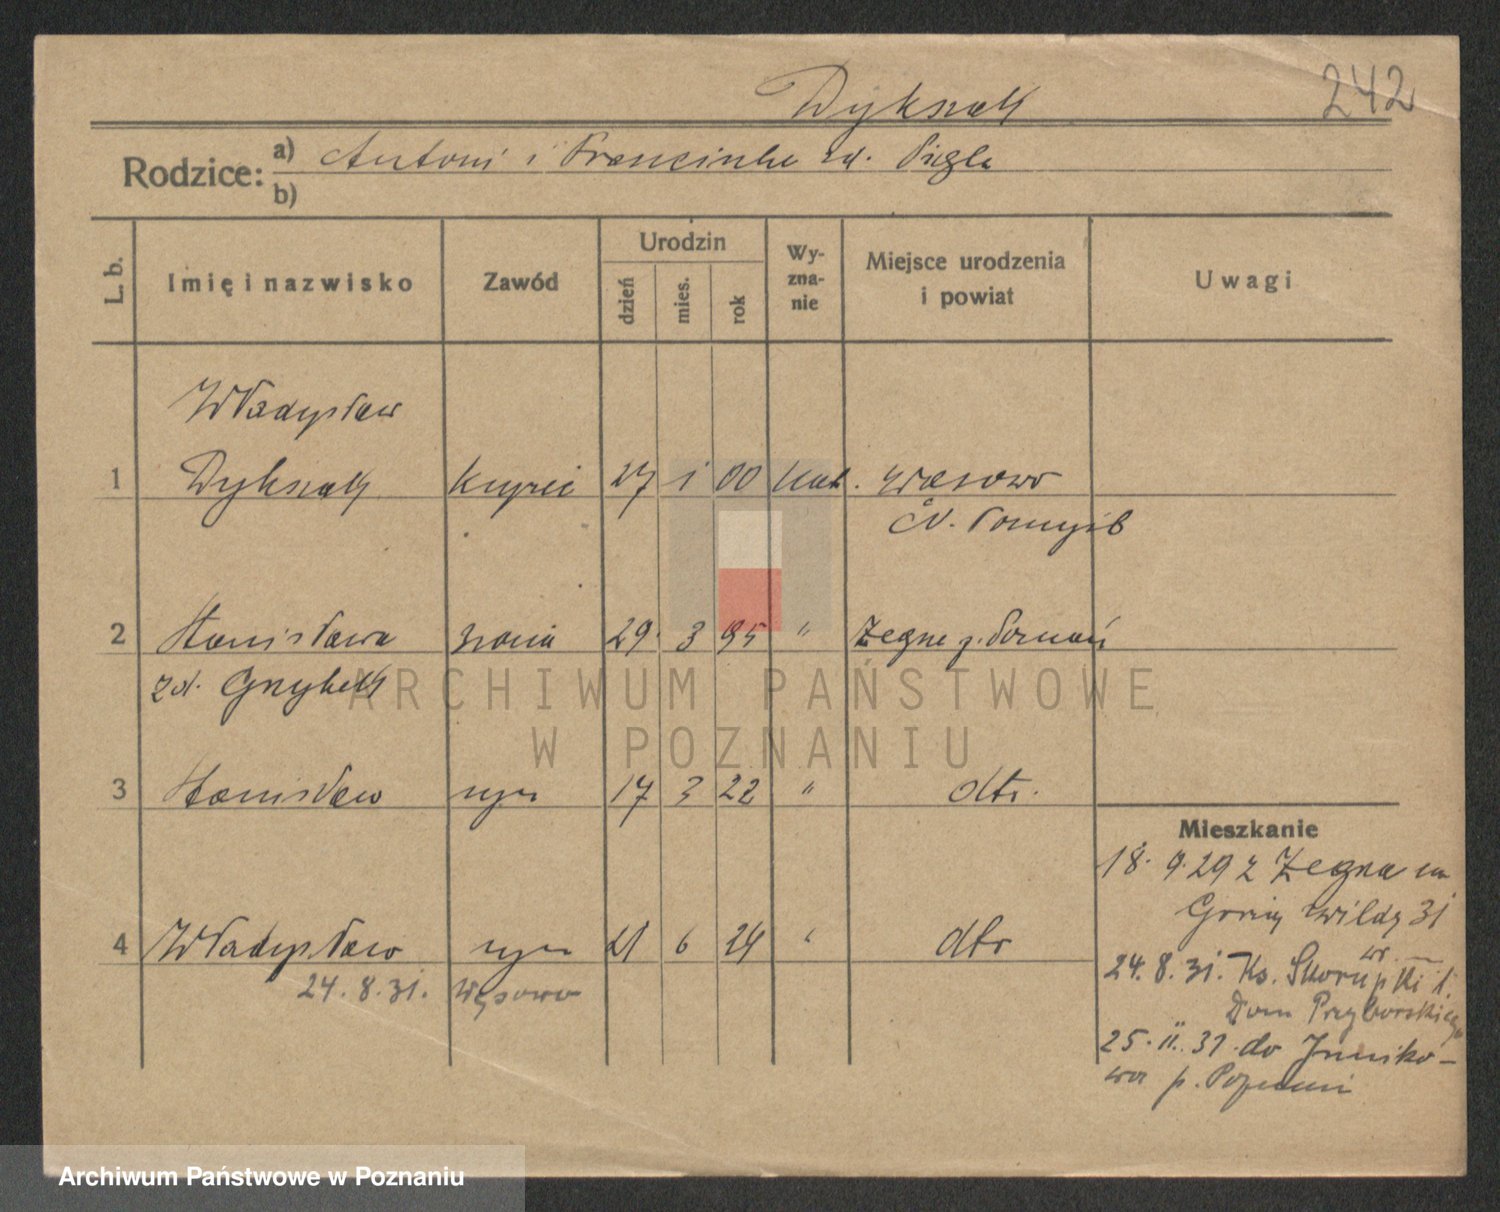 Dykszak
242
Rodzice: a) Antoni i Franciszka zd. Pigla
b)
L. b. Imię i nazwisko Zawód Urodzin dzień mies. rok Wy-zna-nie Miejsce urodzenia i powiat Uwagi
Władysław
1 Dykszak kupiec 27 1 00 kat. Wąsowo
N. Tomyśl
2 Stanisława żona 29. 3 95 " Żegrze p. Poznań
zd. Grzybek
3 Stanisław syn 17 3 22 " dto.
Mieszkanie
18. 9. 29 z Żegrza na
Górną Wildę 31
4 Władysław syn 21 6 24 " dto
24. 8. 31. Ks. Skorupki
24. 8. 31. Wąsowo
Dom Przyborskiego
25. II. 31. do Juniko-
wa p. Poznani
ARCHIWUM PAŃSTWOWE
W POZNANIU
Archiwum Państwowe w Poznaniu